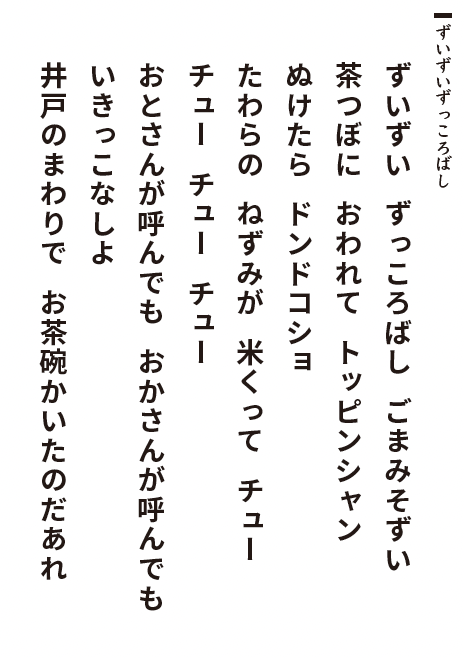 ずいずいずっころばし
ずいずい　ずっころばし　ごまみそずい
茶つぼに　おわれて　トッピンシャン
ぬけたら　ドンドコショ
たわらの　ねずみが　米くって　チュー
チュー　チュー　チュー
おとさんが呼んでも　おかさんが呼んでも
いきっこなしよ
井戸のまわりで　お茶碗かいたのだあれ